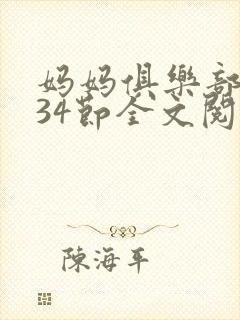 妈妈俱樂部
34節全文閱
陳海平